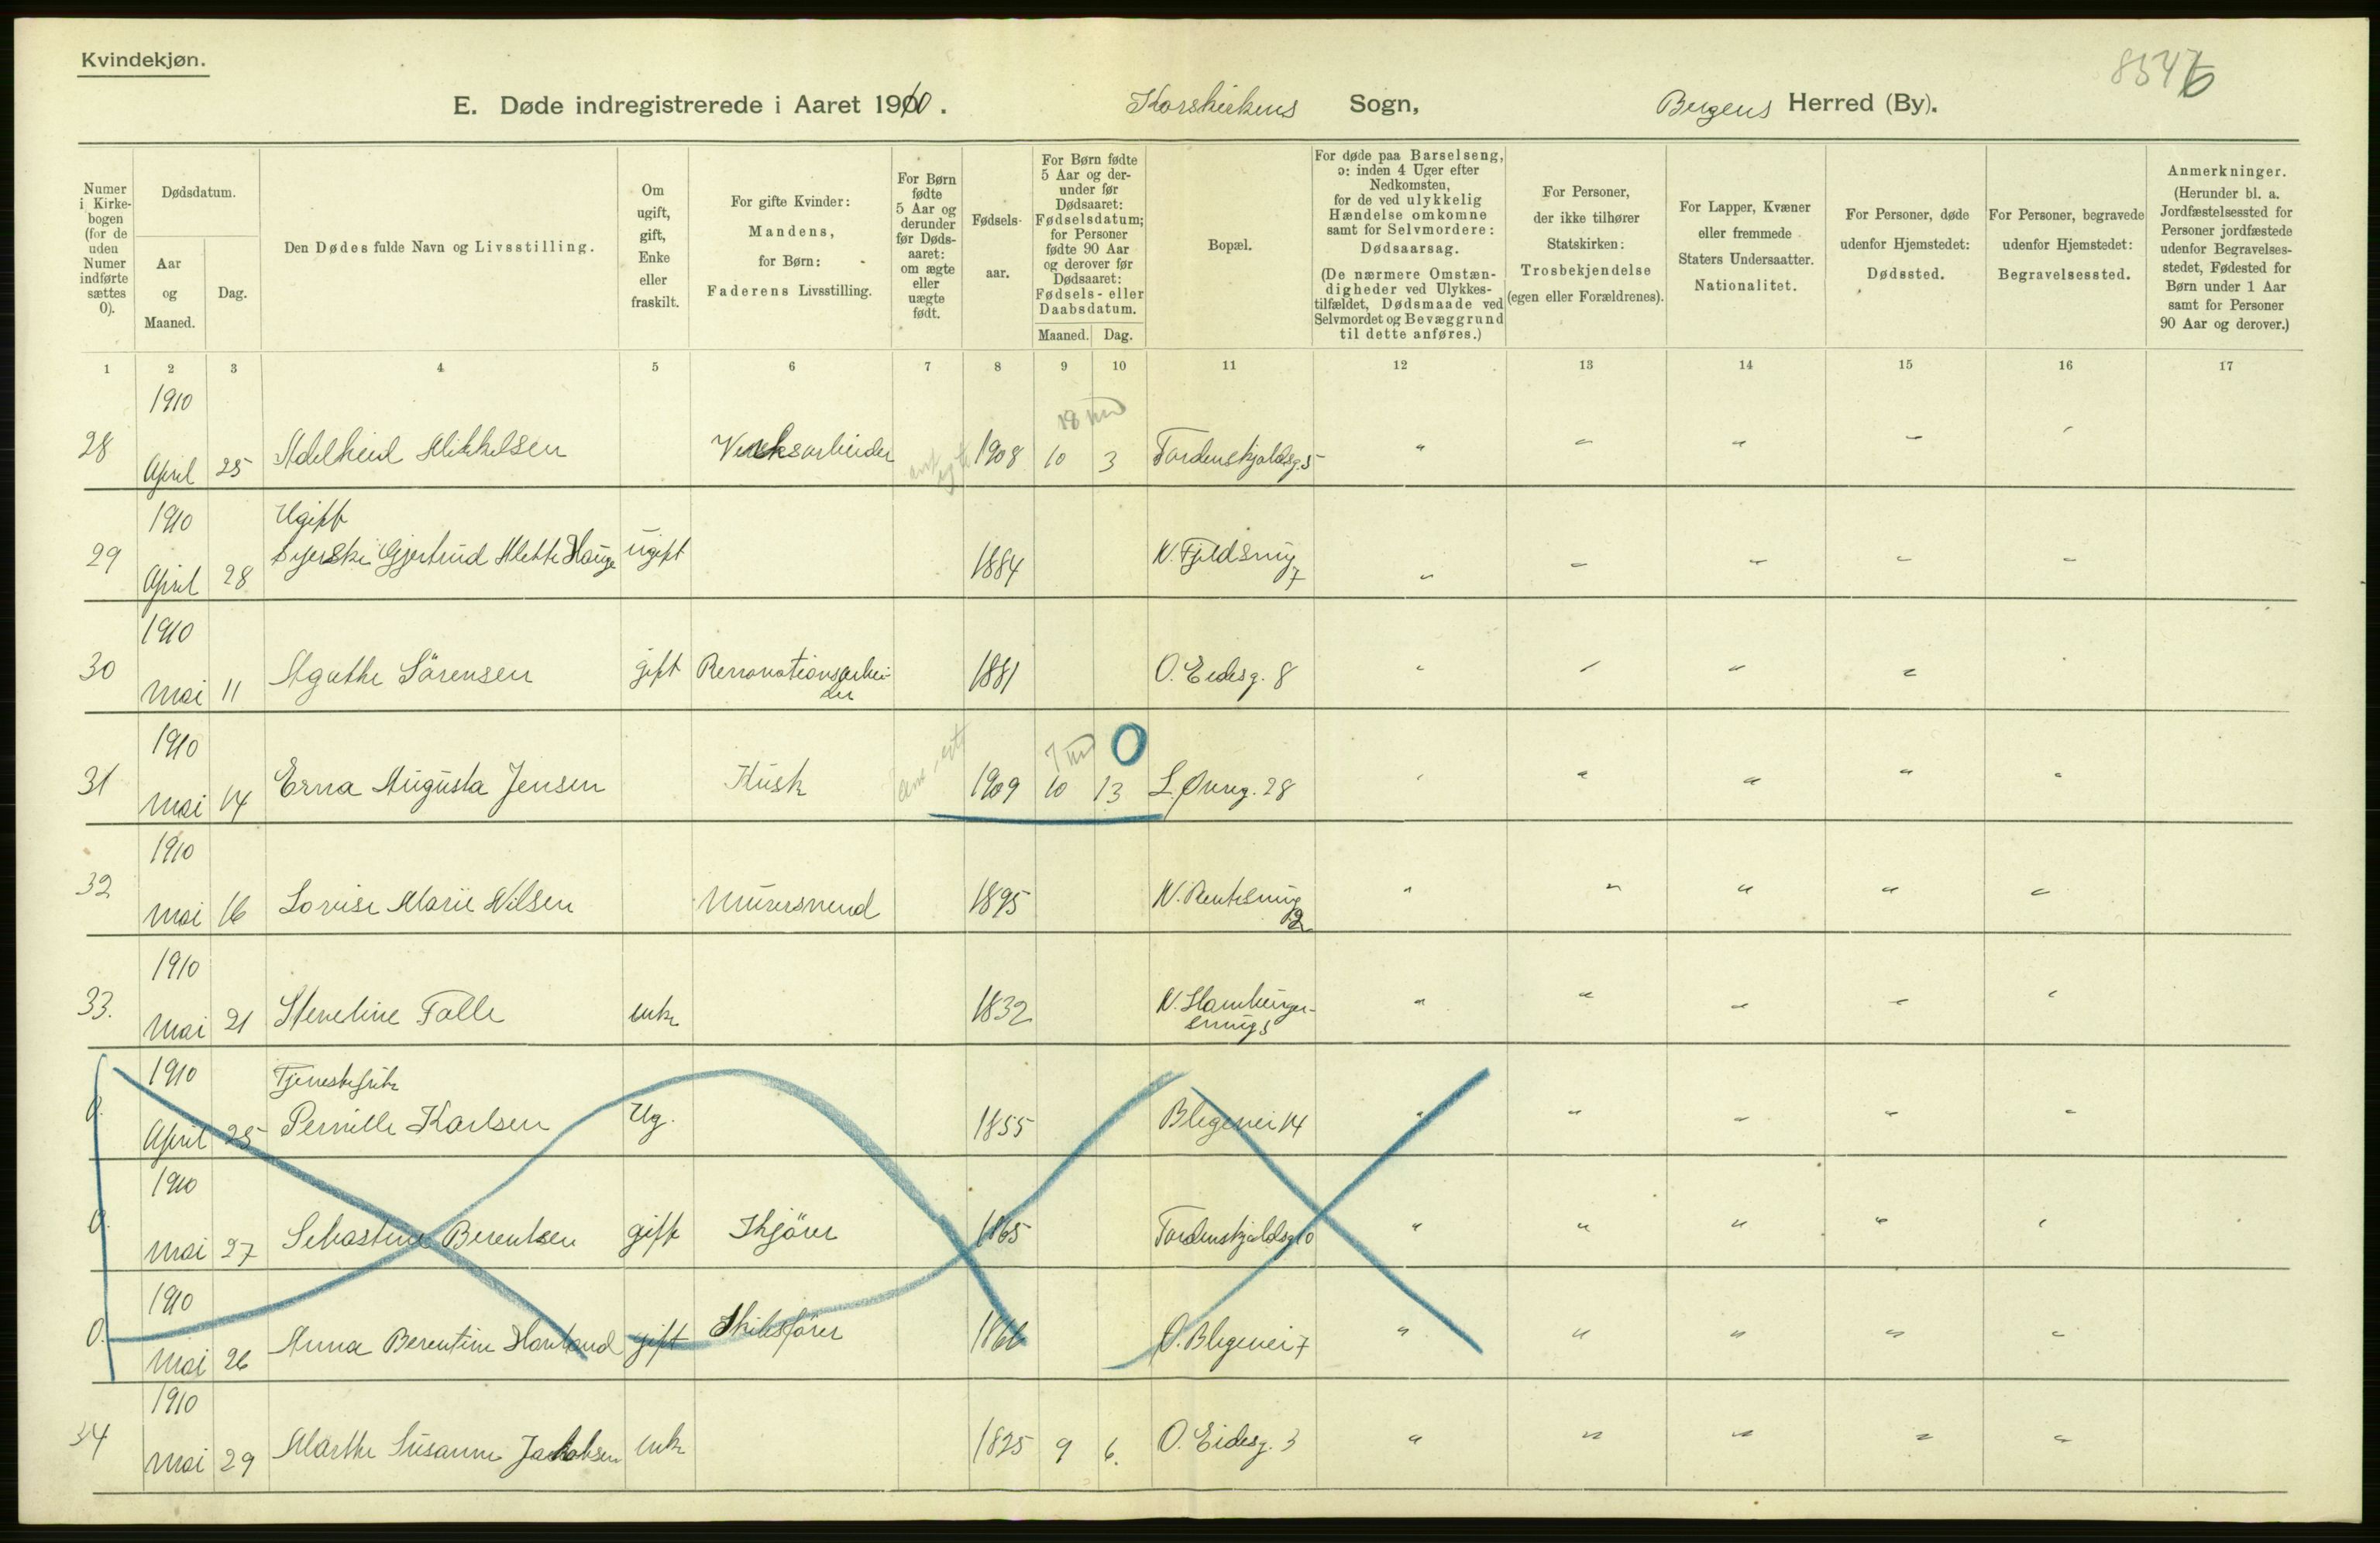 Kvindekjøn.
8546
E. Døde indregistrerede i Aaret 1910. Korskirkens Sogn, Bergens Herred (By).
Numer i Kirkebogen (for de uden Numer indførte sættes 0).
Dødsdatum.
Aar og Maaned.
Dag.
Den Dødes fulde Navn og Livsstilling.
Om ugift, gift, Enke eller fraskilt.
For gifte Kvinder: Mandens, for Børn: Faderens Livsstilling.
For Børn fødte 5 Aar og derunder før Døds-aaret: om ægte eller uægte født.
Fødsels-aar.
For Børn fødte 5 Aar og der-under før Dødsaaret: Fødselsdatum; for Personer fødte 90 Aar og derover før Dødsaaret: Fødsels- eller Daabsdatum.
Maaned. Dag.
Bopæl.
For døde paa Barselseng, ɔ: inden 4 Uger efter Nedkomsten, for de ved ulykkelig Hændelse omkomne samt for Selvmordere: Dødsaarsag.
(De nærmere Omstæn-digheder ved Ulykkes-tilfældet, Dødsmaade ved Selvmordet og Bevæggrund til dette anføres.)
For Personer, der ikke tilhører Statskirken: Trosbekjendelse (egen eller Forældrenes).
For Lapper, Kvæner eller fremmede Staters Undersaatter. Nationalitet.
For Personer, døde udenfor Hjemstedet: Dødssted.
For Personer, begravede udenfor Hjemstedet: Begravelsessted.
Anmerkninger.
(Herunder bl. a. Jordfæstelsessted for Personer jordfæstede udenfor Begravelses-stedet, Fødested for Børn under 1 Aar samt for Personer 90 Aar og derover.)
1 2 3 4 5 6 7 8 9 10 11 12 13 14 15 16 17
1910
28 April 25 Adelheid Mikkelsen Verksarbeider 1908 10 3 Tordenskjoldsg. 5 " " " " "
1910 Ugift
29 April 28 Syerske Gjertrud Mette Hauge ugift 1884 N. Fjeldsmug 7 " " " " "
1910
30 Mai 11 Agathe Sörensen gift Renovationsarbei-
der 1881 O. Eidesg. 8 " " " "
1910 7 md 0
31 Mai 14 Erna Augusta Jensen Kusk 1909 10 13 L. Øvreg. 28 " " " " "
1910
32 Mai 16 Lovise Marie Nilsen Murersvend 1895 N. Rentesmug
12 " " " " "
1910
33. Mai 21 Steneline Falle enke 1832 N. Hamburger-
smug 5 " " " " "
1910 Tjenestepike
0. April 25 Pernille Karlsen Ug. 1855 Blegevei 14 " " " " "
1910
0. Mai 27 Sebastine Berentsen gift 1865 Tordenskjoldsg 10 " " " " "
1910
0. Mai 26 Anna Berentine gift Skibsfører 1866 O. Blegevei 7 " " " " "
1910
34 Mai 29 Marthe Susanne Jakobsen enke 1825 9 6. O. Eidesg. 3 " " " " "